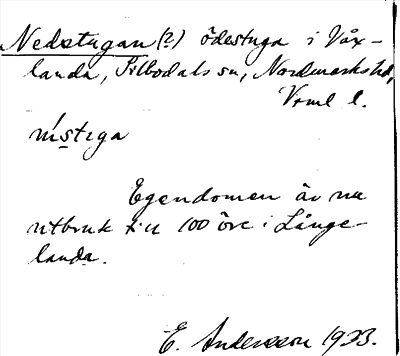 Nedstugan (?) ödestuga i Våx-
landa, Silbodals sn, Nordmarks hd,
Vrml l.
nístiga
Egendomen är nu
utbruk till 100 öre i Långe-
landa.
E. Andersson 1933.